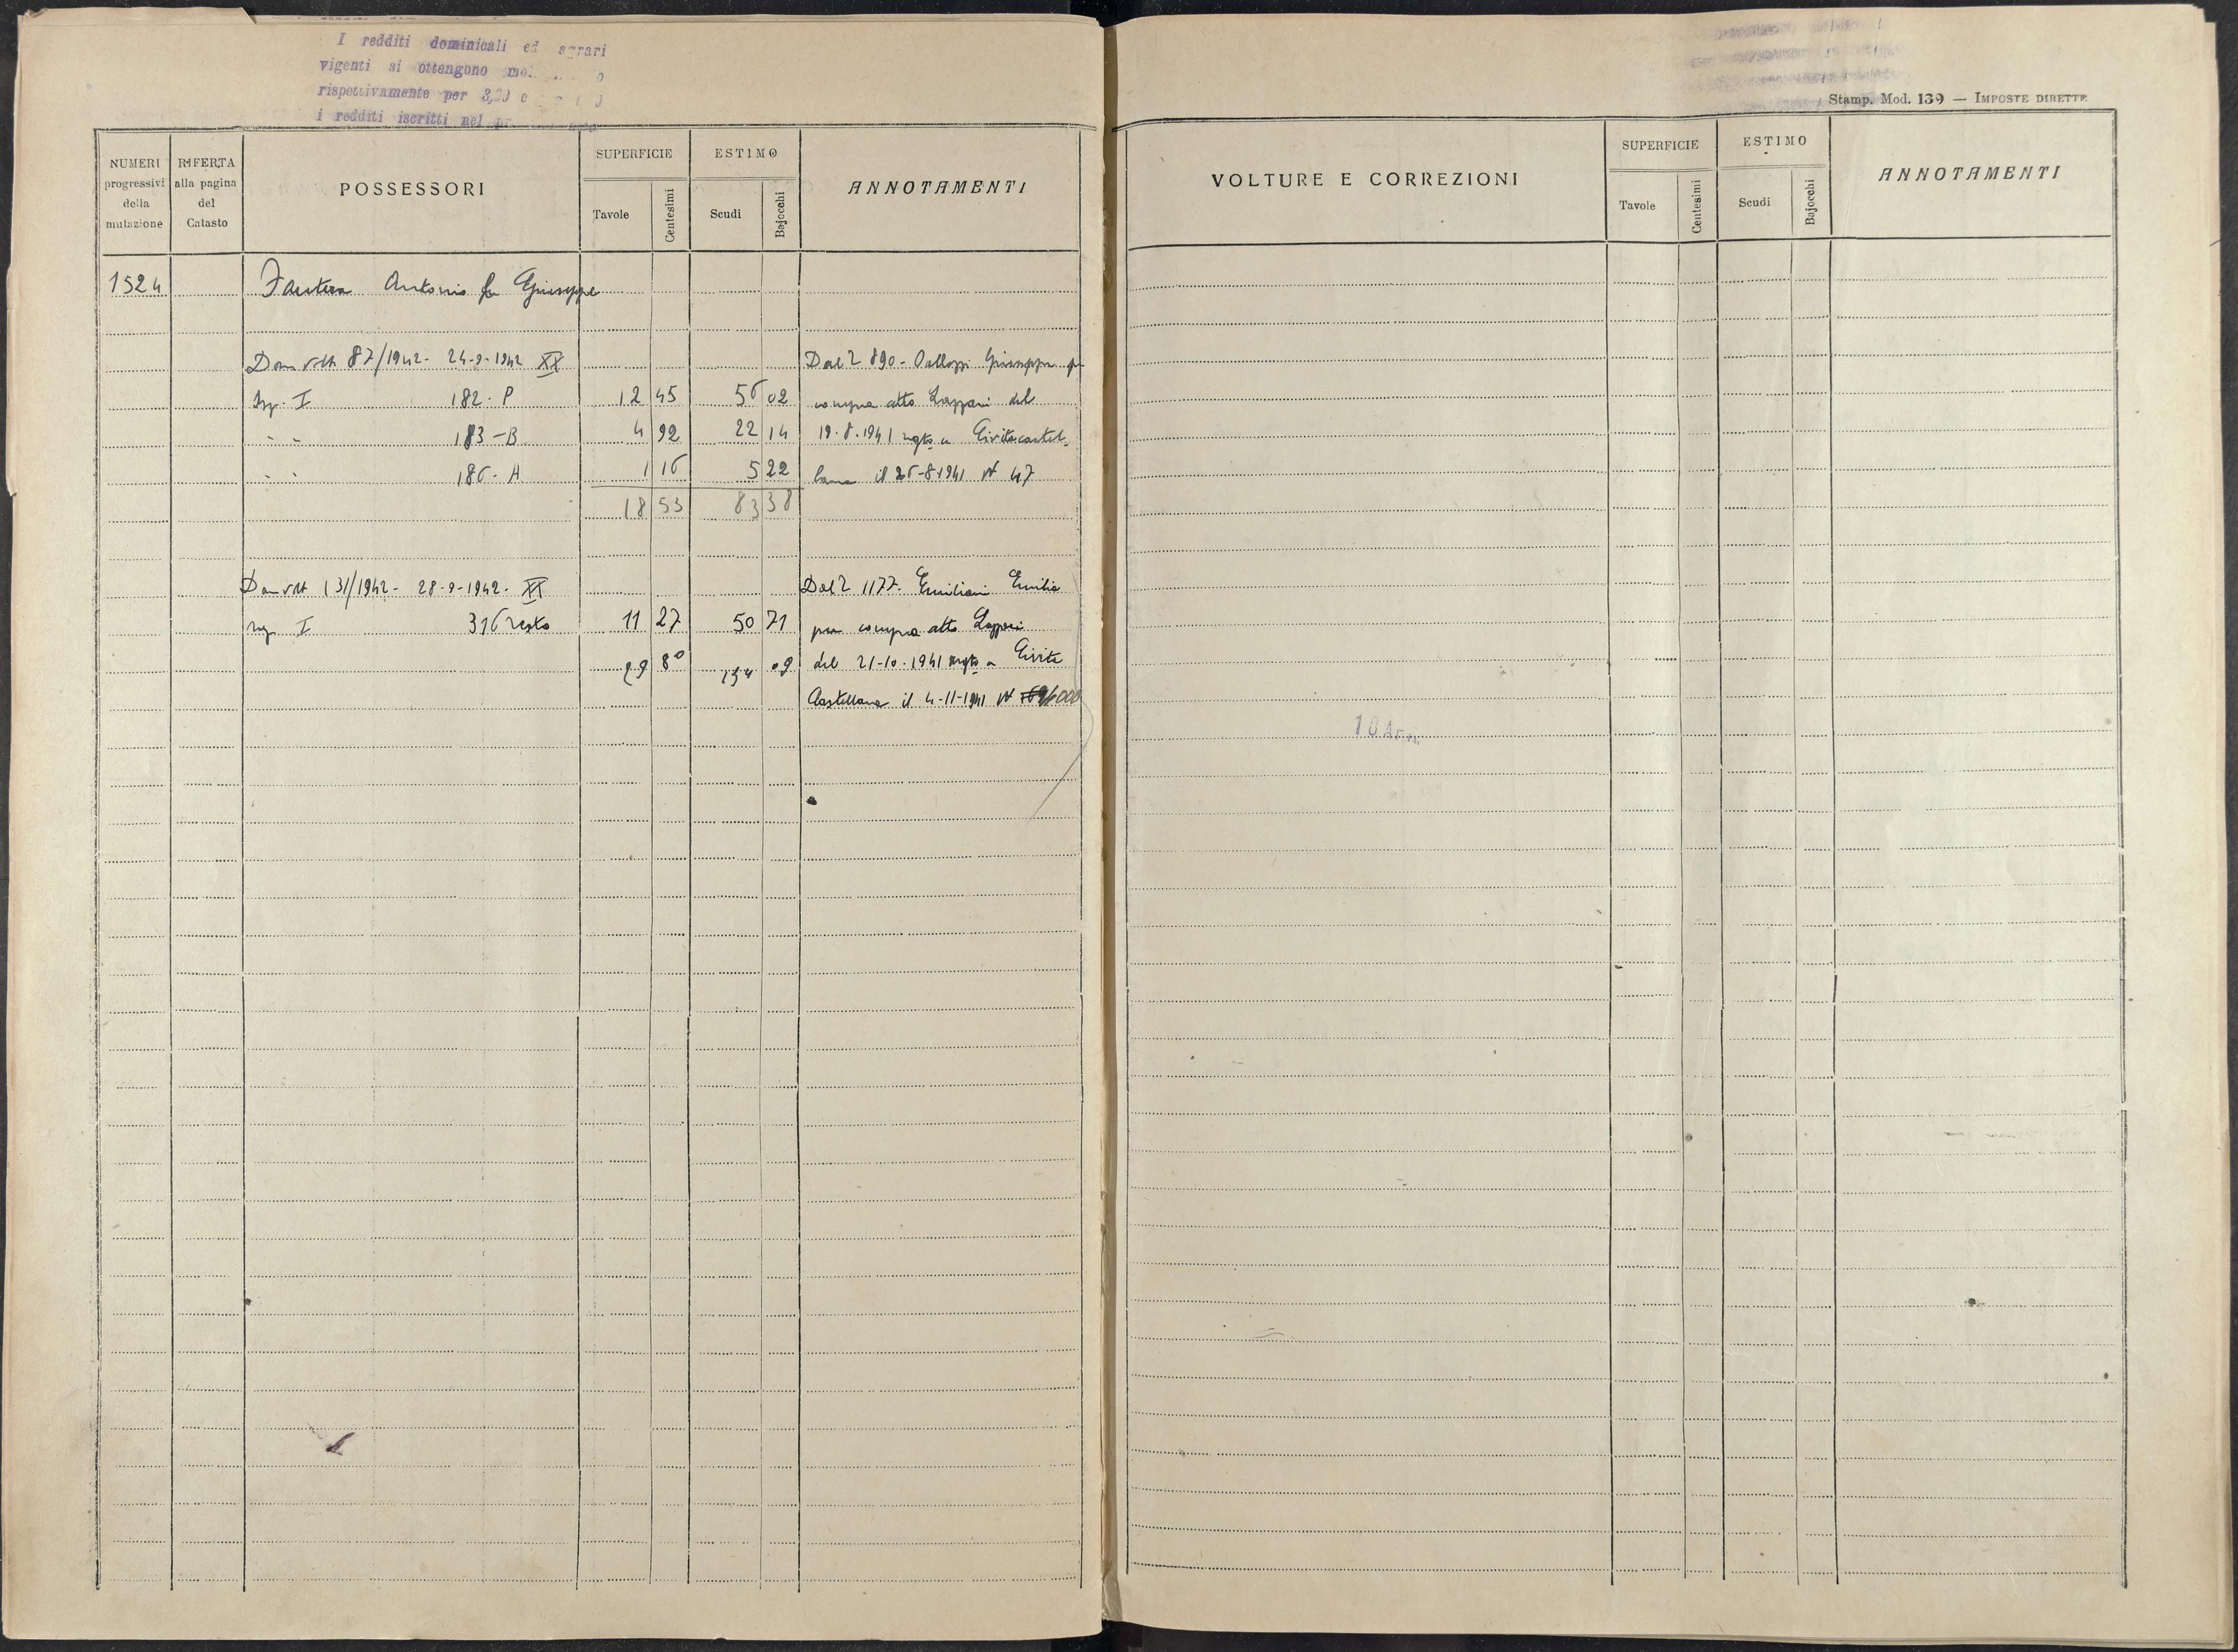 I redditi dominicali ed agrari
vigenti si ottengono
rispettivamente per 3,20 e
i redditi iscritti nel
Stamp. Mod. 139 — IMPOSTE DIRETTE
NUMERI progressivi della mutazione
RIFERTA alla pagina del Catasto
POSSESSORI
SUPERFICIE
Tavole
Centesimi
ESTIMO
Scudi
Bajocchi
ANNOTAMENTI
VOLTURE E CORREZIONI
SUPERFICIE
Tavole
Centesimi
ESTIMO
Scudi
Bajocchi
ANNOTAMENTI
1524 Antonio fu Giuseppe
87/1942 - 24-9-1942 XX Dal 890 - Giuseppe
I 182 - P 12 45 56 02 compra atto Lazzari del
" " 183 - B 4 92 22 14 19.8.1941 a Civitacastel-
" " 186 - H 1 16 5 22 lana il 26-8-1941 N 47
18 53 83 38
131/1942 - 28-9-1942 - XX Dal 1177 - Emiliani Emilia
I 316 resto 11 27 50 71 per compra atto Lazzari
29 80 134 09 del 21-10-1941 a Civita
Castellana il 4-11-1941 N